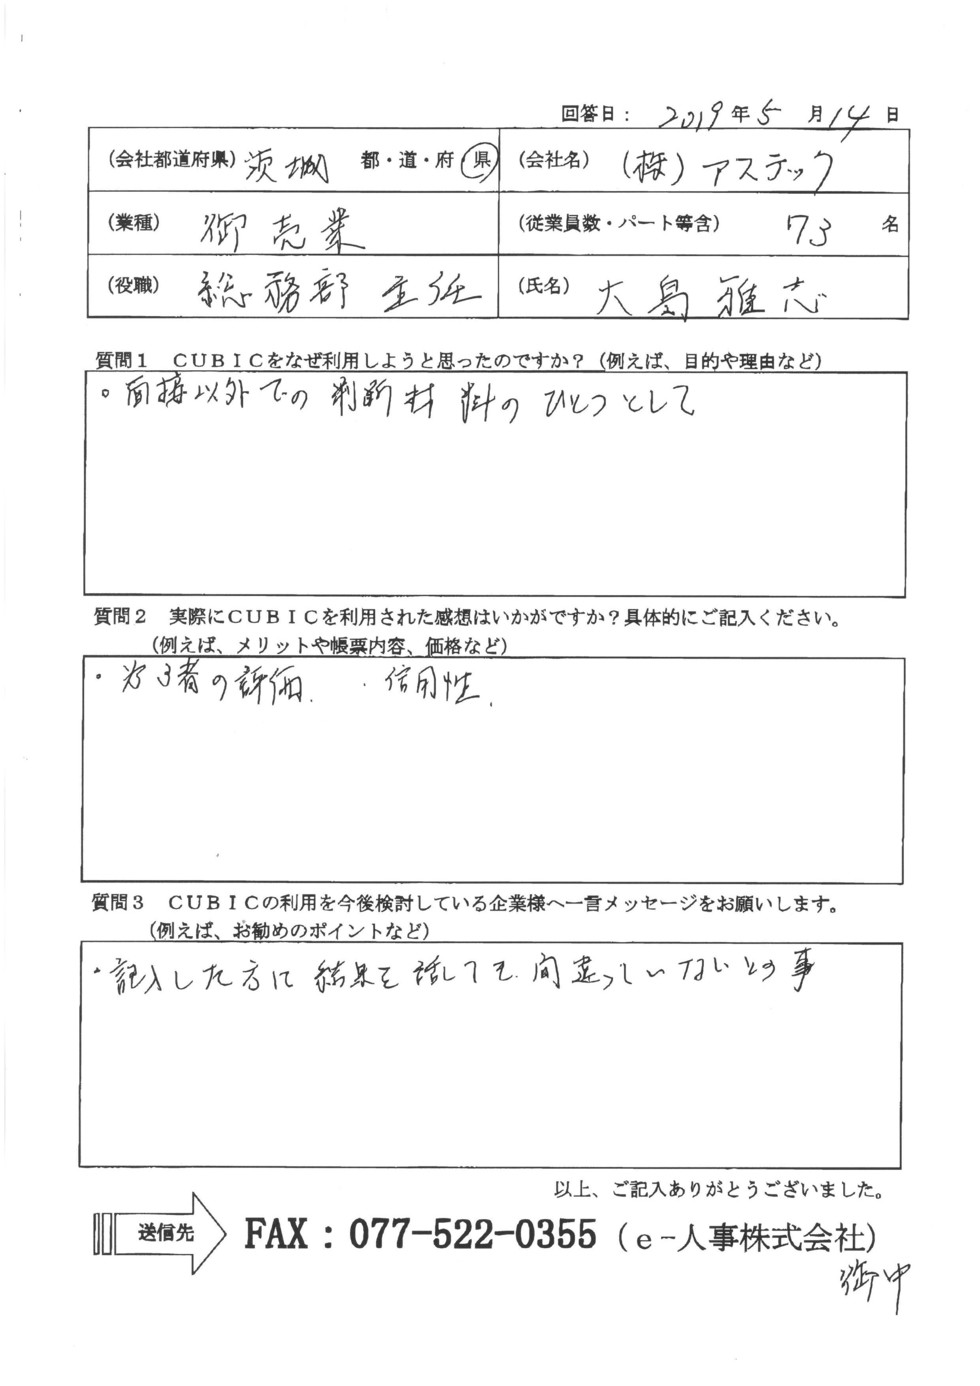 回答日： 2019年5月14日
（会社都道府県） 茨城 都・道・府・県 （会社名） （株）アステック
（業種） 御売業 （従業員数・パート等含） 73 名
（役職） 総務部 主任 （氏名） 大島雅志
質問１ ＣＵＢＩＣをなぜ利用しようと思ったのですか？（例えば、目的や理由など）
。面接以外での判断材料のひとつとして
質問２ 実際にＣＵＢＩＣを利用された感想はいかがですか？具体的にご記入ください。
（例えば、メリットや帳票内容、価格など）
・労る者の評価. ・信用性.
質問３ ＣＵＢＩＣの利用を今後検討している企業様へ一言メッセージをお願いします。
（例えば、お勧めのポイントなど）
・記入した方に結果を話しても、間違っていないとの事
以上、ご記入ありがとうございました。
送信先 FAX：077-522-0355（e-人事株式会社）
御中